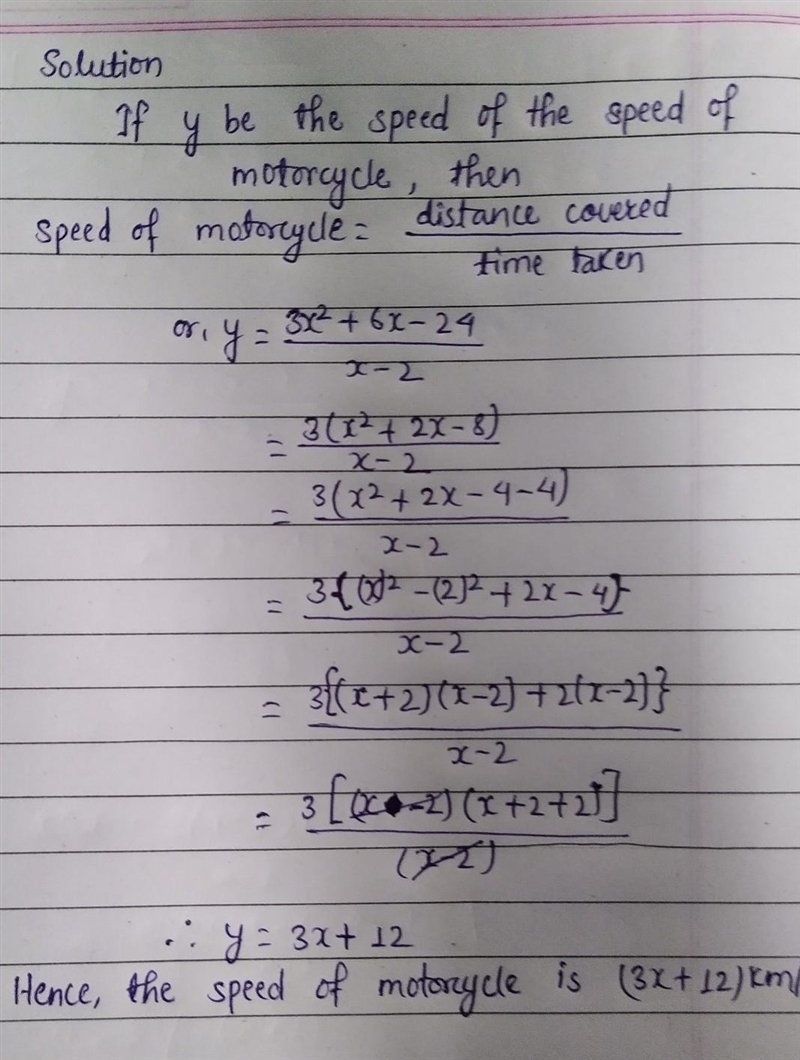 Solution
If y be the speed of the speed of
motorcycle, then
speed of motorcycle = distance covered / time taken
or, y = 3x² + 6x - 24 / x - 2
= 3(x² + 2x - 8) / x - 2
= 3(x² + 2x - 4 - 4) / x - 2
= 3{(x)² - (2)² + 2x - 4} / x - 2
= 3{(x+2)(x-2) + 2(x-2)} / x - 2
= 3[(x-2)(x+2+2)] / (x-2)
∴ y = 3x + 12
Hence, the speed of motorcycle is (3x+12) km/